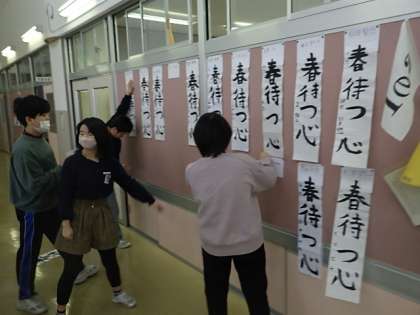 春待つ心
春待つ心
春待つ心
春待つ心
春待つ心
春待つ心
春待つ心
春待つ心
春待つ心
春待つ心
春待つ心